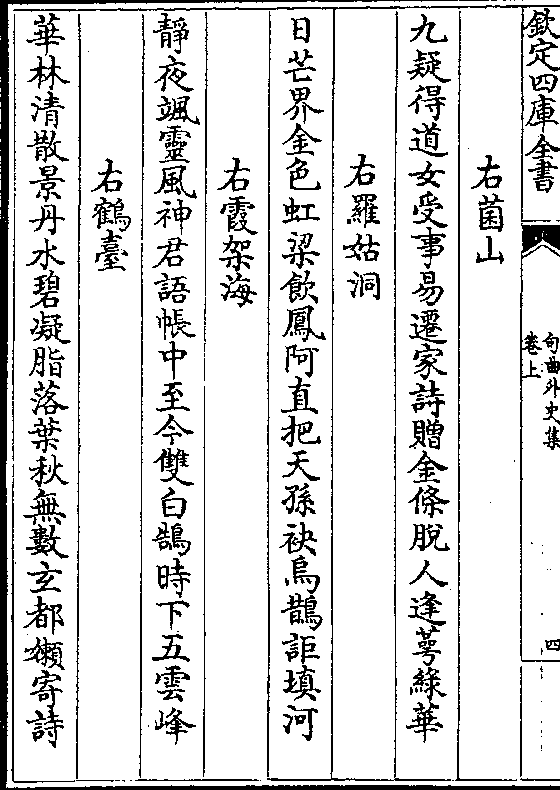 欽定四庫全書
句曲外史集
卷上
四
右菌山
九疑得道女受事易遷家詩贈金條脫人逢萼綠華
右羅姑洞
日芒界金色虹梁飲鳳阿直把天孫袂烏鵲詎填河
右霞架海
靜夜颯靈風神君語帳中至今雙白鵠時下五雲峰
右鶴臺
華林清散景丹水碧凝脂落葉秋無數玄都嬾寄詩